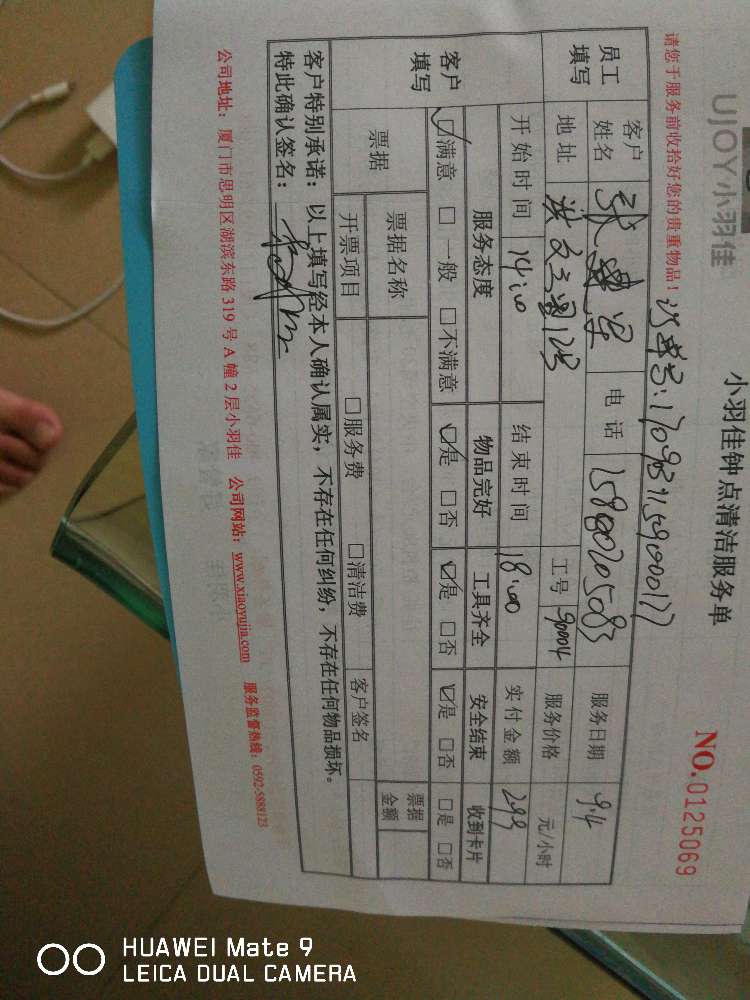 UJOY小羽佳
小羽佳钟点清洁服务单
NO.0125069
请您于服务前收拾好您的贵重物品！
员工填写 客户姓名 张 电话 15880205083 服务日期 9.4
地址 工号 90004 服务价格 元/小时
开始时间 14:00 结束时间 18:00 实付金额 299
客户填写 服务态度 物品完好 工具齐全 安全结束 收到卡片
☑满意 □一般 □不满意 ☑是 □否 ☑是 □否 ☑是 □否 □是 □否
票据 票据名称 票据金额
开票项目 □服务费 □清洁费 客户签名
客户特别承诺：以上填写经本人确认属实，不存在任何纠纷，不存在任何物品损坏。
特此确认签名：
公司地址：厦门市思明区湖滨东路 319 号 A 幢 2 层小羽佳 公司网站：www.xiaoyujia.com 服务监督热线：0592-5888123
HUAWEI Mate 9
LEICA DUAL CAMERA